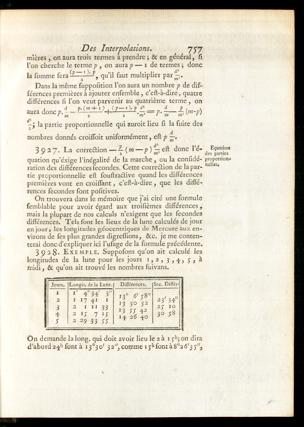 Des Interpolations. 757
mières, on aura trois termes à prendre; & en général, si
l'on cherche le terme p, on aura p — 1 de termes; donc
la somme sera (p-1).p/2, qu'il faut multiplier par d²/m².
Dans la même supposition l'on aura un nombre p de dif-
férences premières à ajouter ensemble, c'est-à-dire, quatre
différences si l'on veut parvenir au quatrième terme, on
aura donc
la partie proportionnelle qui auroit lieu si la suite des
nombres donnés croissoit uniformément, est p d/m.
3927. La correction — p/2 (m — p) d²/m² est donc l'é-
quation qu'exige l'inégalité de la marche, ou la considé-
ration des différences secondes. Cette correction de la par-
tie proportionnelle est soustractive quand les différences
premières vont en croissant, c'est-à-dire, que les diffé-
rences secondes sont positives.
Equation
des parties
proportion-
nelles.
On trouvera dans le mémoire que j'ai cité une formule
semblable pour avoir égard aux troisièmes différences,
mais la plupart de nos calculs n'exigent que les secondes
différences. Tels sont les lieux de la lune calculés de jour
en jour, les longitudes géocentriques de Mercure aux en-
virons de ses plus grandes digressions, &c. je me conten-
terai donc d'expliquer ici l'usage de la formule précédente.
3928. EXEMPLE. Supposons qu'on ait calculé les
longitudes de la lune pour les jours 1, 2, 3, 4, 5, à
midi, & qu'on ait trouvé les nombres suivans.
Jours. Longit. de la Lune. Différences. Sec. Différ.
1 1 4° 34′ 3″
13° 6′ 58″
2 1 17 41 1 23′ 54″
13 30 52
3 2 1 11 53 25 10
13 55 42
4 2 15 7 15 30 58
14 26 40
5 2 29 33 55
On demande la long. qui doit avoir lieu le 2 à 15h; on dira
d'abord 24h sont à 13°30′ 52″, comme 15h sont à 8°26′35″,